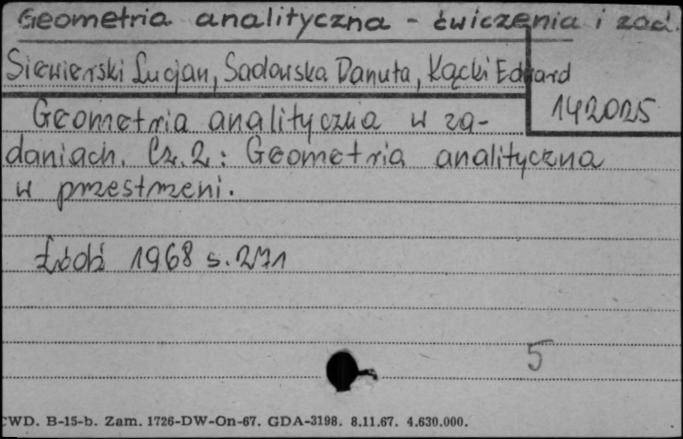 Geometria analityczna - ćwiczenia i zad.
Siewierski Lucjan, Sadowska Danuta, Kącki Edward
142025
Geometria analityczna w za-
daniach. Cz. 2 : Geometria analityczna
w przestrzeni.
Łódź 1968 s. 271
5
CWD. B-15-b. Zam. 1726-DW-On-67. GDA-3198. 8.11.67. 4.630.000.